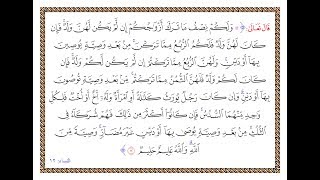 قال تعالى: ﴿ ۞ وَلَكُمْ نِصْفُ مَا تَرَكَ أَزْوَٰجُكُمْ إِن لَّمْ يَكُن لَّهُنَّ وَلَدٌ فَإِن
كَانَ لَهُنَّ وَلَدٌ فَلَكُمُ ٱلرُّبُعُ مِمَّا تَرَكْنَ مِنۢ بَعْدِ وَصِيَّةٍ يُوصِينَ
بِهَآ أَوْ دَيْنٍ وَلَهُنَّ ٱلرُّبُعُ مِمَّا تَرَكْتُمْ إِن لَّمْ يَكُن لَّكُمْ وَلَدٌ فَإِن
كَانَ لَكُمْ وَلَدٌ فَلَهُنَّ ٱلثُّمُنُ مِمَّا تَرَكْتُم مِّنۢ بَعْدِ وَصِيَّةٍ تُوصُونَ
بِهَآ أَوْ دَيْنٍ وَإِن كَانَ رَجُلٌ يُورَثُ كَلَٰلَةً أَوِ ٱمْرَأَةٌ وَلَهُۥٓ أَخٌ أَوْ أُخْتٌ فَلِكُلِّ
وَٰحِدٍ مِّنْهُمَا ٱلسُّدُسُ فَإِن كَانُوٓا۟ أَكْثَرَ مِن ذَٰلِكَ فَهُمْ شُرَكَآءُ فِى
ٱلثُّلُثِ مِنۢ بَعْدِ وَصِيَّةٍ يُوصَىٰ بِهَآ أَوْ دَيْنٍ غَيْرَ مُضَآرٍّ وَصِيَّةً مِّنَ
ٱللَّهِ وَٱللَّهُ عَلِيمٌ حَلِيمٌ ﴾
النساء: ١٢